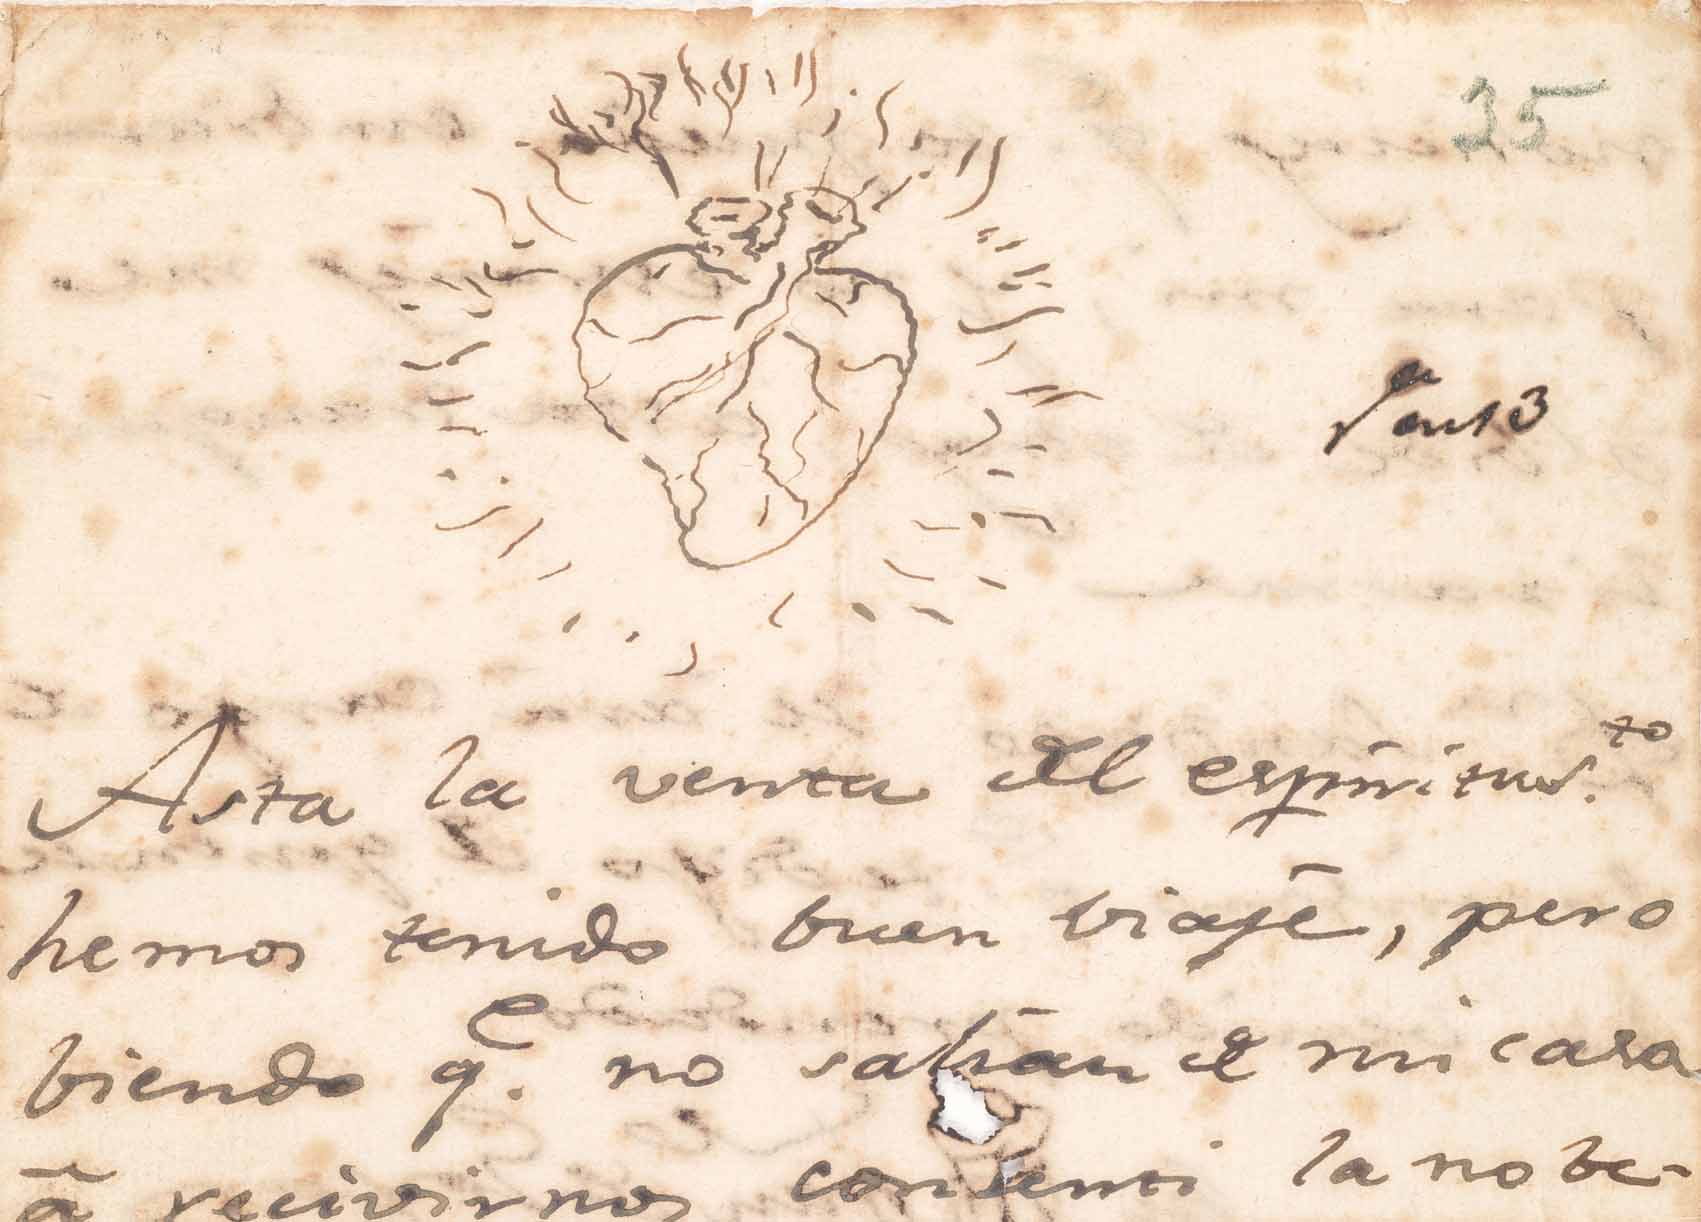 25
Asta la venta del espiritus.to
hemos tenido buen viaje, pero
biendo q.e no salian de mi casa
â recivirnos consenti la nobe-